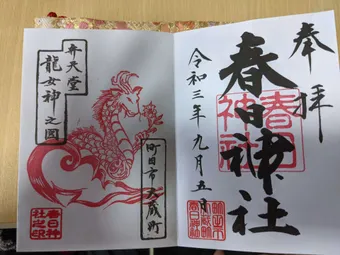 奉拝
春日神社
春日
神社
令和三年九月五日
弁天堂
龍女神之図
町田市大蔵町
春日神
社之印